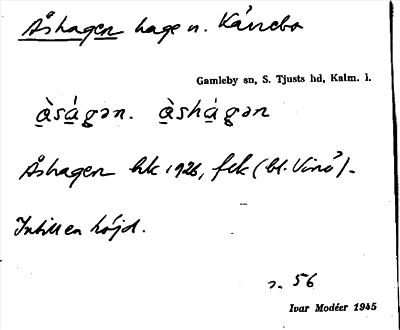 Åshagen hage n. Kårrebo
Gamleby sn, S. Tjusts hd, Kalm. l.
à̱sá̱gən. à̱shá̱gən
Åshagen hk 1926, fck (bl. Vinö).
Intill en höjd.
s. 56
Ivar Modéer 1945